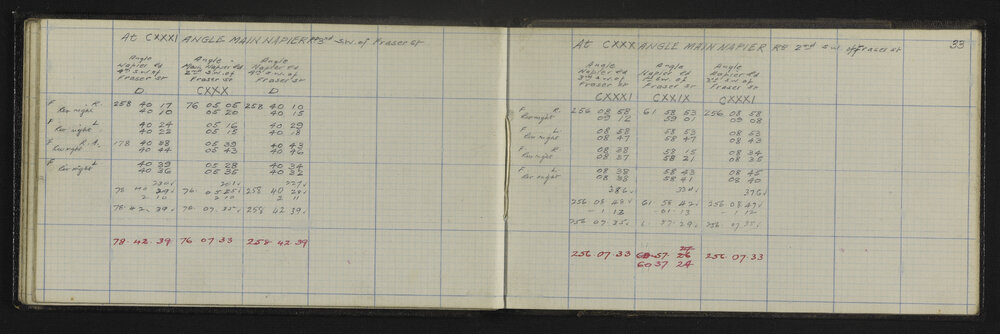 At CXXXI ANGLE MAIN NAPIER Rd 3rd S.W. of Fraser St
Angle Angle Angle
Napier Rd Main Napier Rd Napier Rd
4th S.W. of 2nd S.W. of 4th S.W. of
Fraser St Fraser St Fraser St
D CXXX D
F R. 258 40 17 76 05 05 258 40 10
Rev night 40 10 05 20 40 15
F L 40 24 05 16 40 29
Rev night 40 22 05 15 40 18
F R.A. 178 40 38 05 39 40 43
Rev night 40 44 05 43 40 46
F L 40 39 05 28 40 34
Rev night 40 36 05 35 40 32
230 201 227
78 40 29 76 05 25 258 40 28
2 10 2 10 2 11
78. 42. 39 76. 07. 35 258 42 39
78. 42. 39 76 07. 33 258. 42 39
33
At CXXX ANGLE MAIN NAPIER Rd 2nd S.W. of Fraser St
Angle Angle Angle
Napier Rd Napier Rd Napier Rd
3rd S.W. of 1st S.W. of 3rd S.W. of
Fraser St Fraser St Fraser St
CXXXI CXXIX CXXXI
F R. 256 08 58 61 58 53 256 08 58
Rev night 09 12 59 01 09 08
F L 08 58 58 53 08 53
Rev night 08 47 58 47 08 43
F R 08 38 58 15 08 34
Rev night 08 37 58 21 08 35
F L 08 38 58 43 08 45
Rev night 08 38 58 41 08 40
386 334 376
256 08 48 61 58 42 256 08 47
- 1 12 - 01. 13 - 1 12
256 07. 35 57. 29 256. 07. 35
27
256. 07. 33 60. 57. 26 256. 07. 33
60 37 24